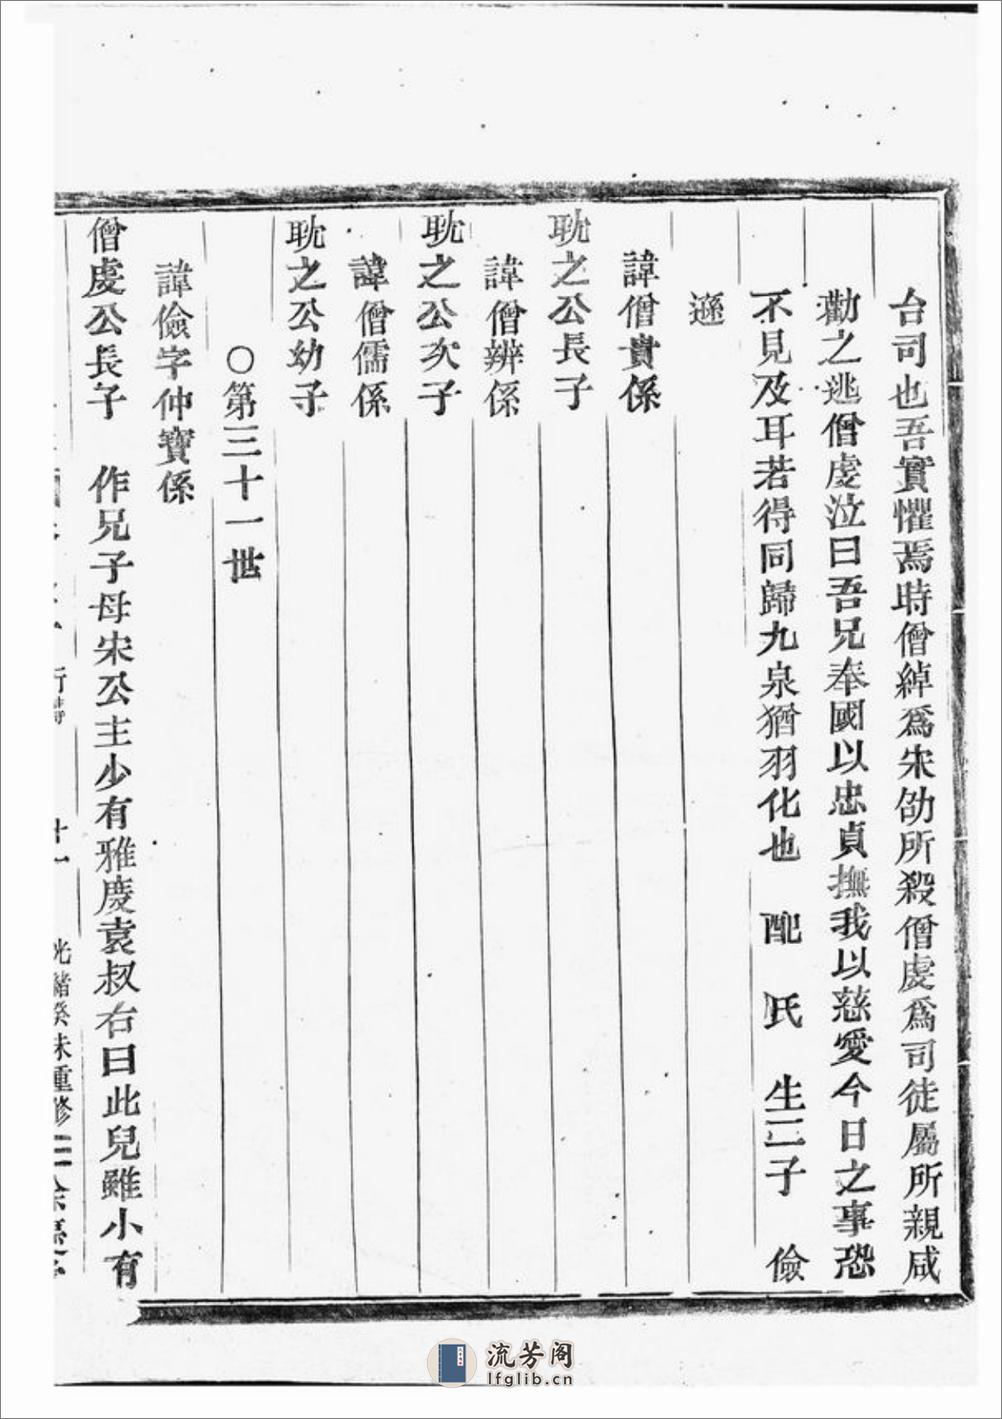 台司也吾實懼焉時僧綽爲宋劭所殺僧虔爲司徒屬所親咸
勸之逃僧虔泣曰吾兄奉國以忠貞撫我以慈愛今日之事恐
不見及耳若得同歸九泉猶羽化也 配 氏 生二子 儉
遜
諱僧貴係
耽之公長子
諱僧辨係
耽之公次子
諱僧儒係
耽之公幼子
○第三十一世
諱儉字仲寶係
僧虔公長子 作兄子母宋公主少有雅度袁叔右曰此兒雖小有
十一 光緒癸未重修
流芳阁
lfglib.cn